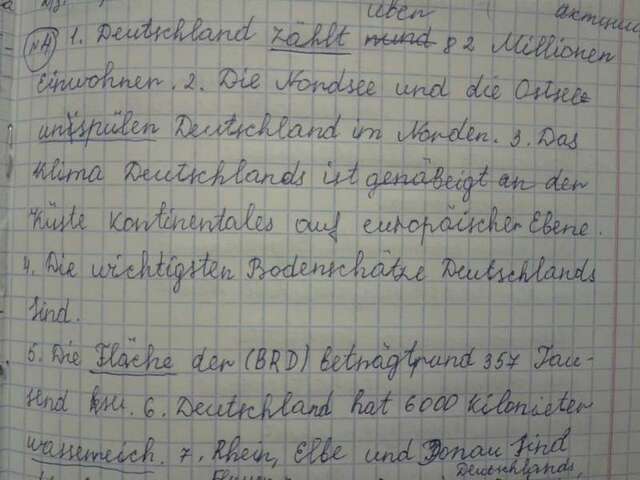 über актин
№4 1. Deutschland zählt rund 82 Millionen
Einwohner. 2. Die Nordsee und die Ostsee
umspülen Deutschland im Norden. 3. Das
Klima Deutschlands ist gemäβeigt an der
Küste kontinentales auf europäischer Ebene.
4. Die wichtigsten Bodenschätze Deutschlands
sind.
5. Die Fläche der (BRD) beträgt rund 357 Tau-
send km. 6. Deutschland hat 6000 Kilometer
wasserreich. 7. Rhein, Elbe und Donau sind
Deutschlands,